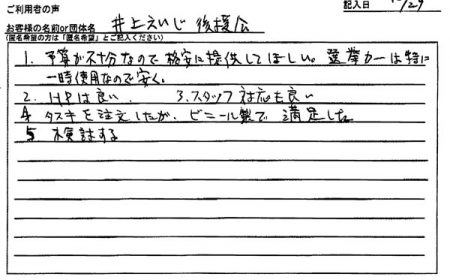 ご利用者の声
記入日 /29
お客様の名前or団体名 井上えいじ 後援会
(匿名希望の方は「匿名希望」とご記入ください)
1. 予算が不十分なので格安に提供してほしい。選挙カーは特に
一時使用なので安く。
2. HPは良い 3.スタッフ対応も良い
4 タスキを注文したが、ビニール製で満足した。
5 検討する